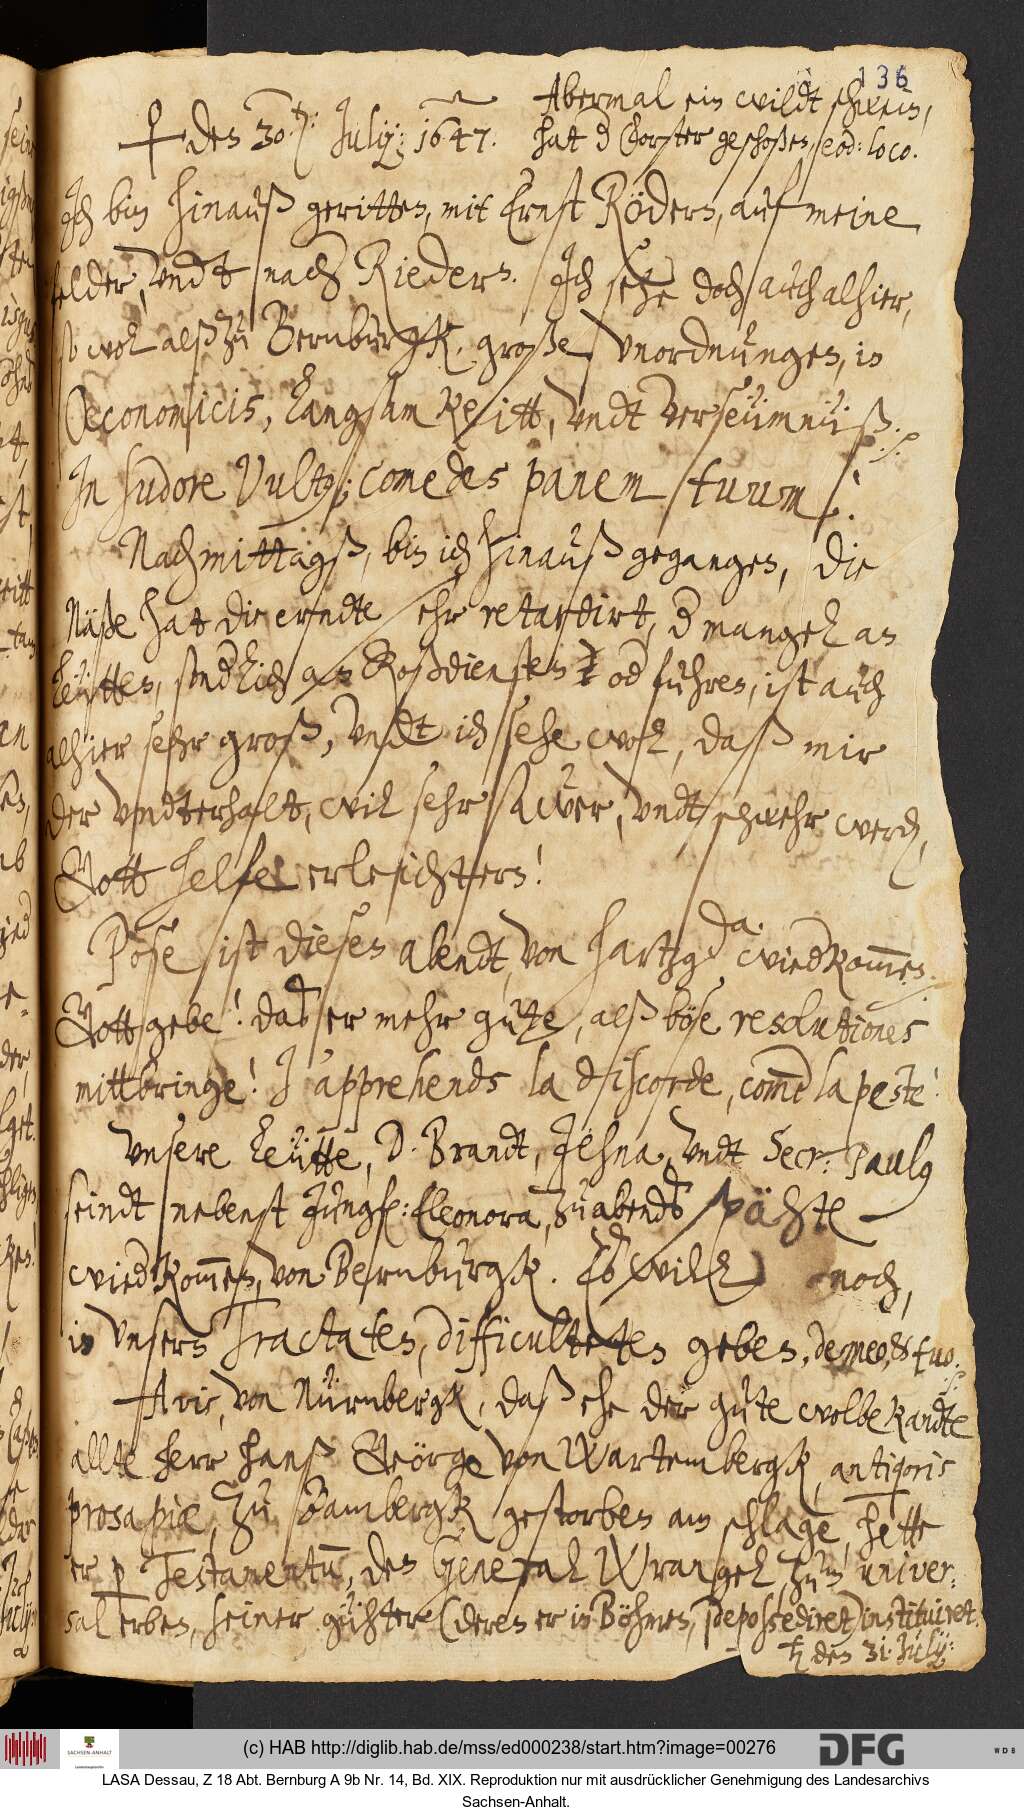 136
Abermal ein wildt schwein,
♀ den 30.ten: Julij; 1647. hat d Förster geschoßen, eod: loco.
Ich bin hinauß geritten, mit Ernst Röders, auf meine
felder, vndt nach Rieders. Ich sehe doch auch alhier,
so wol alß zu Bernburgk, große vnordnungen, in
Oeconomicis, Langsam keitt, vndt verseümnüß. /.
In sudore Vultus; comedes panem tuum /.
Nachmittagß, bin ich hinauß gegangen, die
Näße hat die erndte sehr retardirt, d mangel an
Leütten, sondlich an Roßdiensten od fuhren, ist auch
alhier sehr groß, vndt ich sehe wol, daß mir
der vndterhalt, will sehr sawer, vndt schwehr werden,
Gott helfe erleichttern!
Pöse ist diesen abendt, von Hartzgeroda wiedkommen.
Gott gebe! daß er mehr gute, alß böse resolutiones
mittbringe! J'apprehends la discorde, comme la peste!
Vnsere Leütte, D. Brandt, Jehna, vndt Secr: Paulus
seindt nebenst Jungf: Eleonora, zu abends spähte
wiedkommen, von Bernburgk. Es will noch,
in vnsern Tractaten, difficulteten geben, de meo, & tuo. /.
Avis, von Nürnbergk, daß ehe der gute wolbekandte
allte herr Hanß Geörge von Wartembergk, antiquoris
prosapiæ, zu Bambergk gestorben am schlage, hette
er p Testamentum, den General Wrangel, zum univer-
sal erben, seiner gühter (deren er in Böhmen, depossediret) instituiret.
♄ den 31. Julij:
(c) HAB http://diglib.hab.de/mss/ed000238/start.htm?image=00276
SACHSEN-ANHALT
DFG
WDB
LASA Dessau, Z 18 Abt. Bernburg A 9b Nr. 14, Bd. XIX. Reproduktion nur mit ausdrücklicher Genehmigung des Landesarchivs
Sachsen-Anhalt.